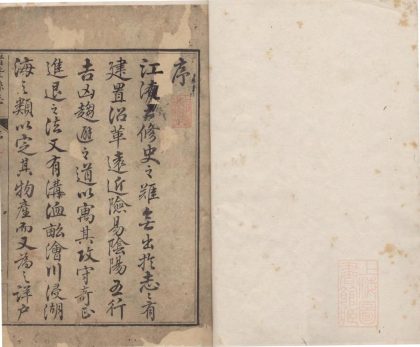 序
江淹云修史之難無出於志志有
建置沿革遠近險易陰陽五行
吉凶趨避之道以寓其攻守奇正
進退之法又有溝洫畎澮川浸湖
海之類以定其物產而又為之詳戶
上海圖
書館藏